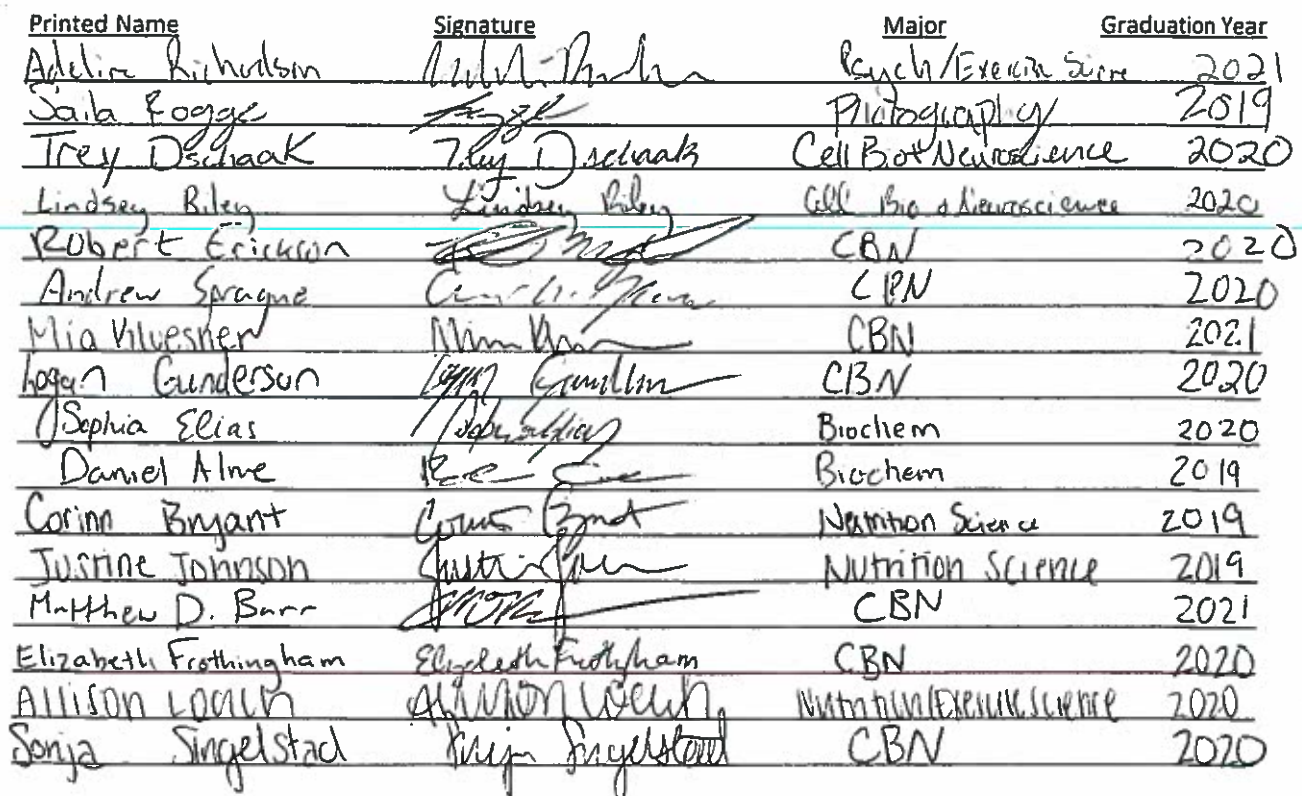 Printed Name Signature Major Graduation Year
Adeline Richardson Psych/Exercise Science 2021
Saila Fogge Photography 2019
Trey Dschaak Trey Dschaak Cell Bio + Neuroscience 2020
Lindsey Riley Lindsey Riley Cell Bio & Neuroscience 2020
Robert Erickson CBN 2020
Andrew Sprague CBN 2020
Mia CBN 2021
Logan Gunderson Logan CBN 2020
Sophia Elias Sophia Elias Biochem 2020
Daniel Alme Biochem 2019
Corinn Bryant Nutrition Science 2019
Justine Johnson Nutrition Science 2019
Matthew D. Barr CBN 2021
Elizabeth Frothingham Elizabeth Frothingham CBN 2020
Allison Allison Nutrition/Exercise Science 2020
Sonja Singelstad Sonja Singelstad CBN 2020